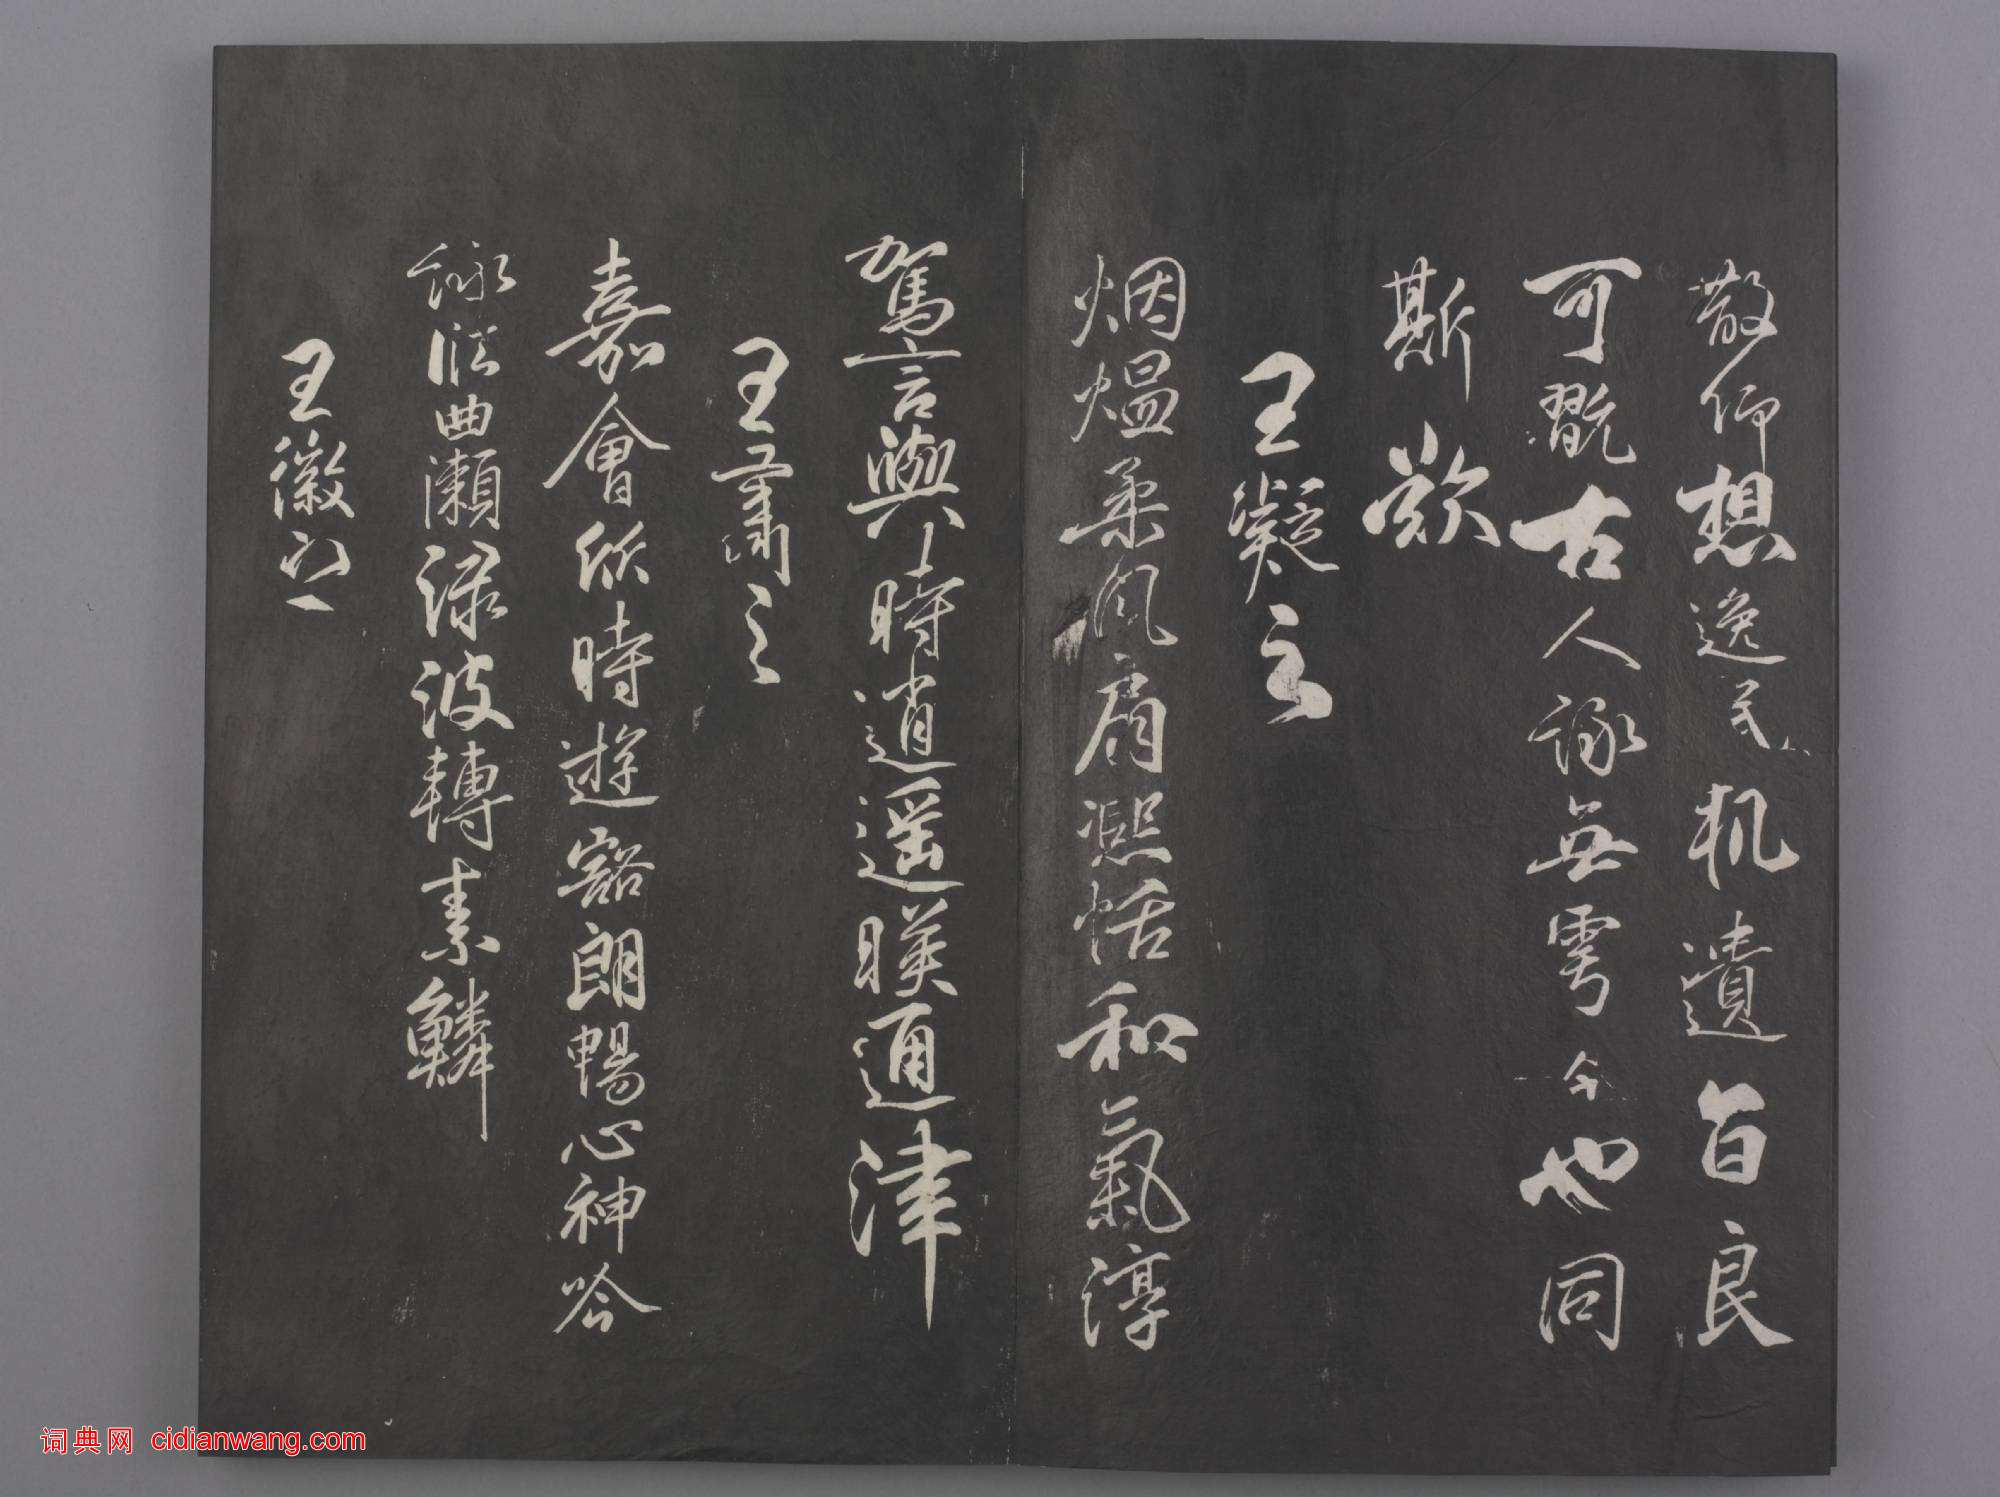 散仰想逸民軌遺音良
可翫古人詠無雩今也同
斯歎
王凝之
烟煴柔風扇熙恬和氣淳
駕言興時逍遥暎通津
王肅之
嘉會欣時遊豁朗暢心神吟
詠曲瀨淥波轉素鱗
王徽之
词典网 cidianwang.com